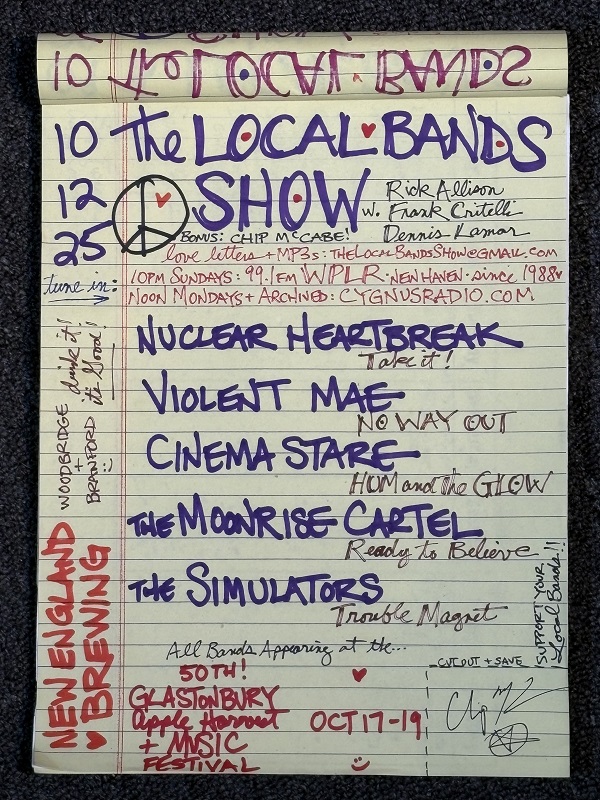 10 the LOCAL BANDS
10 The LOCAL BANDS
12 SHOW Rick Allison
w. Frank Critelli
25 BONUS: CHIP McCABE! Dennis Kamar
love letters + MP3s: THELOCALBANDSSHOW@GMAIL.COM
tune in: 10PM SUNDAYS: 99.1 FM WPLR · NEW HAVEN · since 1988
NOON MONDAYS + ARCHIVED: CYGNUSRADIO.COM
NUCLEAR HEARTBREAK
Take it!
VIOLENT MAE
NO WAY OUT
CINEMA STARE
HUM and the GLOW
THE MOONRISE CARTEL
Ready to Believe
THE SIMULATORS
Trouble Magnet
All Bands Appearing at the...
50TH!
GLASTONBURY
Apple Harvest
+ MUSIC
FESTIVAL
OCT 17-19
NEW ENGLAND
BREWING
WOODBRIDGE
+
BRANFORD
drink it!
it's Good!
SUPPORT YOUR
Local Bands!!
CUT OUT + SAVE